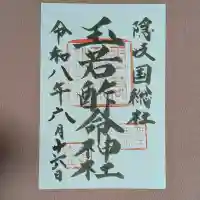 隠岐国総社
玉若酢命神社
令和八年六月十六日